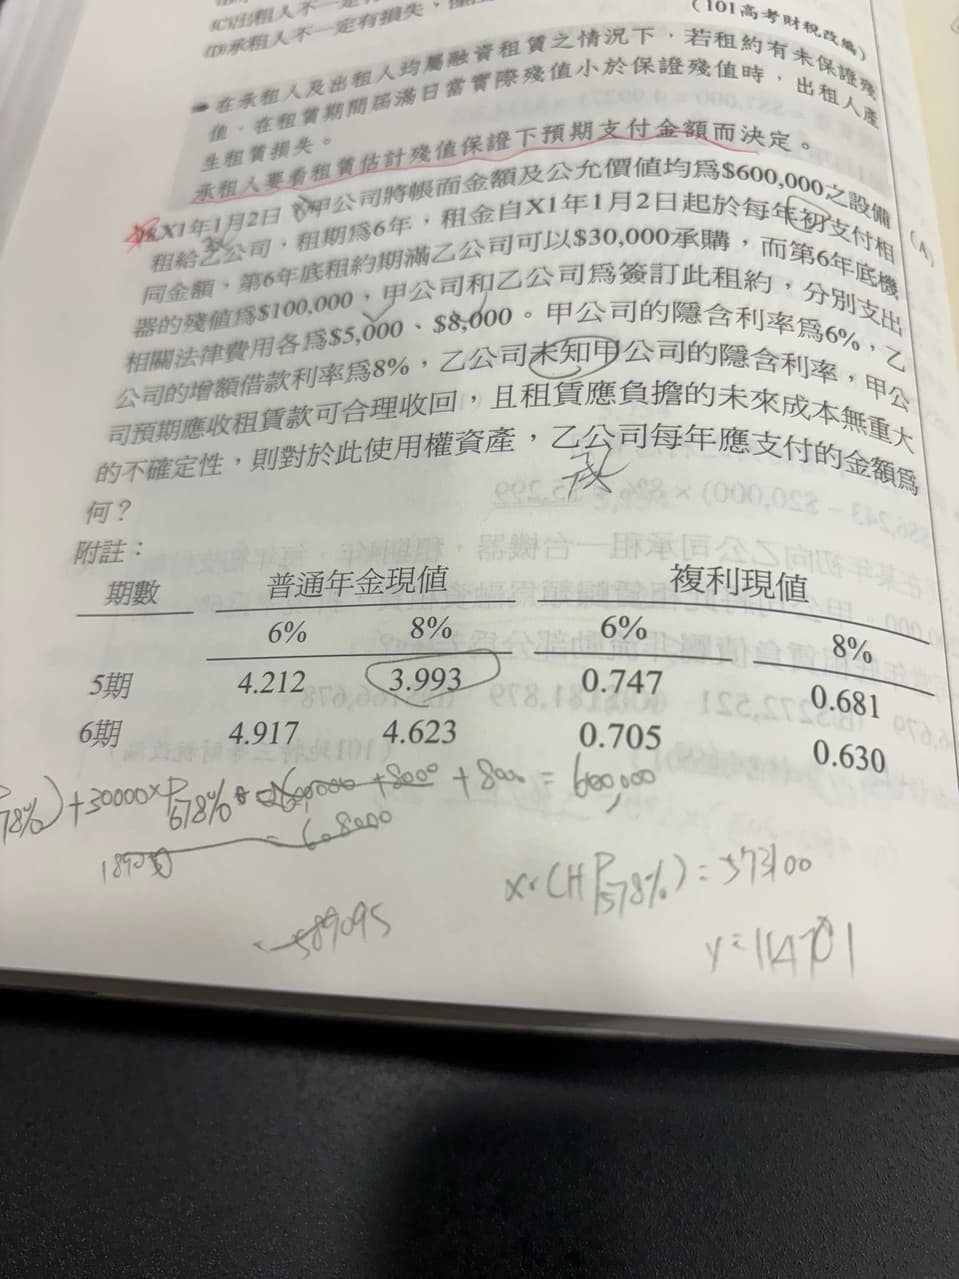 (C)出租人不一定有
(D)承租人不一定有損失，
(101高考財稅改編)
➡在承租人及出租人均屬融資租賃之情況下，若租約有未保證殘
值，在租賃期間屆滿日當實際殘值小於保證殘值時，出租人產
生租賃損失。
承租人要看租賃估計殘值保證下預期支付金額而決定。
X1年1月2日，甲公司將帳面金額及公允價值均為$600,000之設備
租給乙公司，租期為6年，租金自X1年1月2日起於每年初支付相
同金額，第6年底租約期滿乙公司可以$30,000承購，而第6年底機
器的殘值為$100,000，甲公司和乙公司為簽訂此租約，分別支出
相關法律費用各為$5,000、$8,000。甲公司的隱含利率為6%，乙
公司的增額借款利率為8%，乙公司未知甲公司的隱含利率，甲公
司預期應收租賃款可合理收回，且租賃應負擔的未來成本無重大
的不確定性，則對於此使用權資產，乙公司每年應支付的金額為
何？
附註：
期數 普通年金現值 複利現值
6% 8% 6% 8%
5期 4.212 3.993 0.747 0.681
6期 4.917 4.623 0.705 0.630
+8000 = 600,000
608000
18900
589095
= 573100